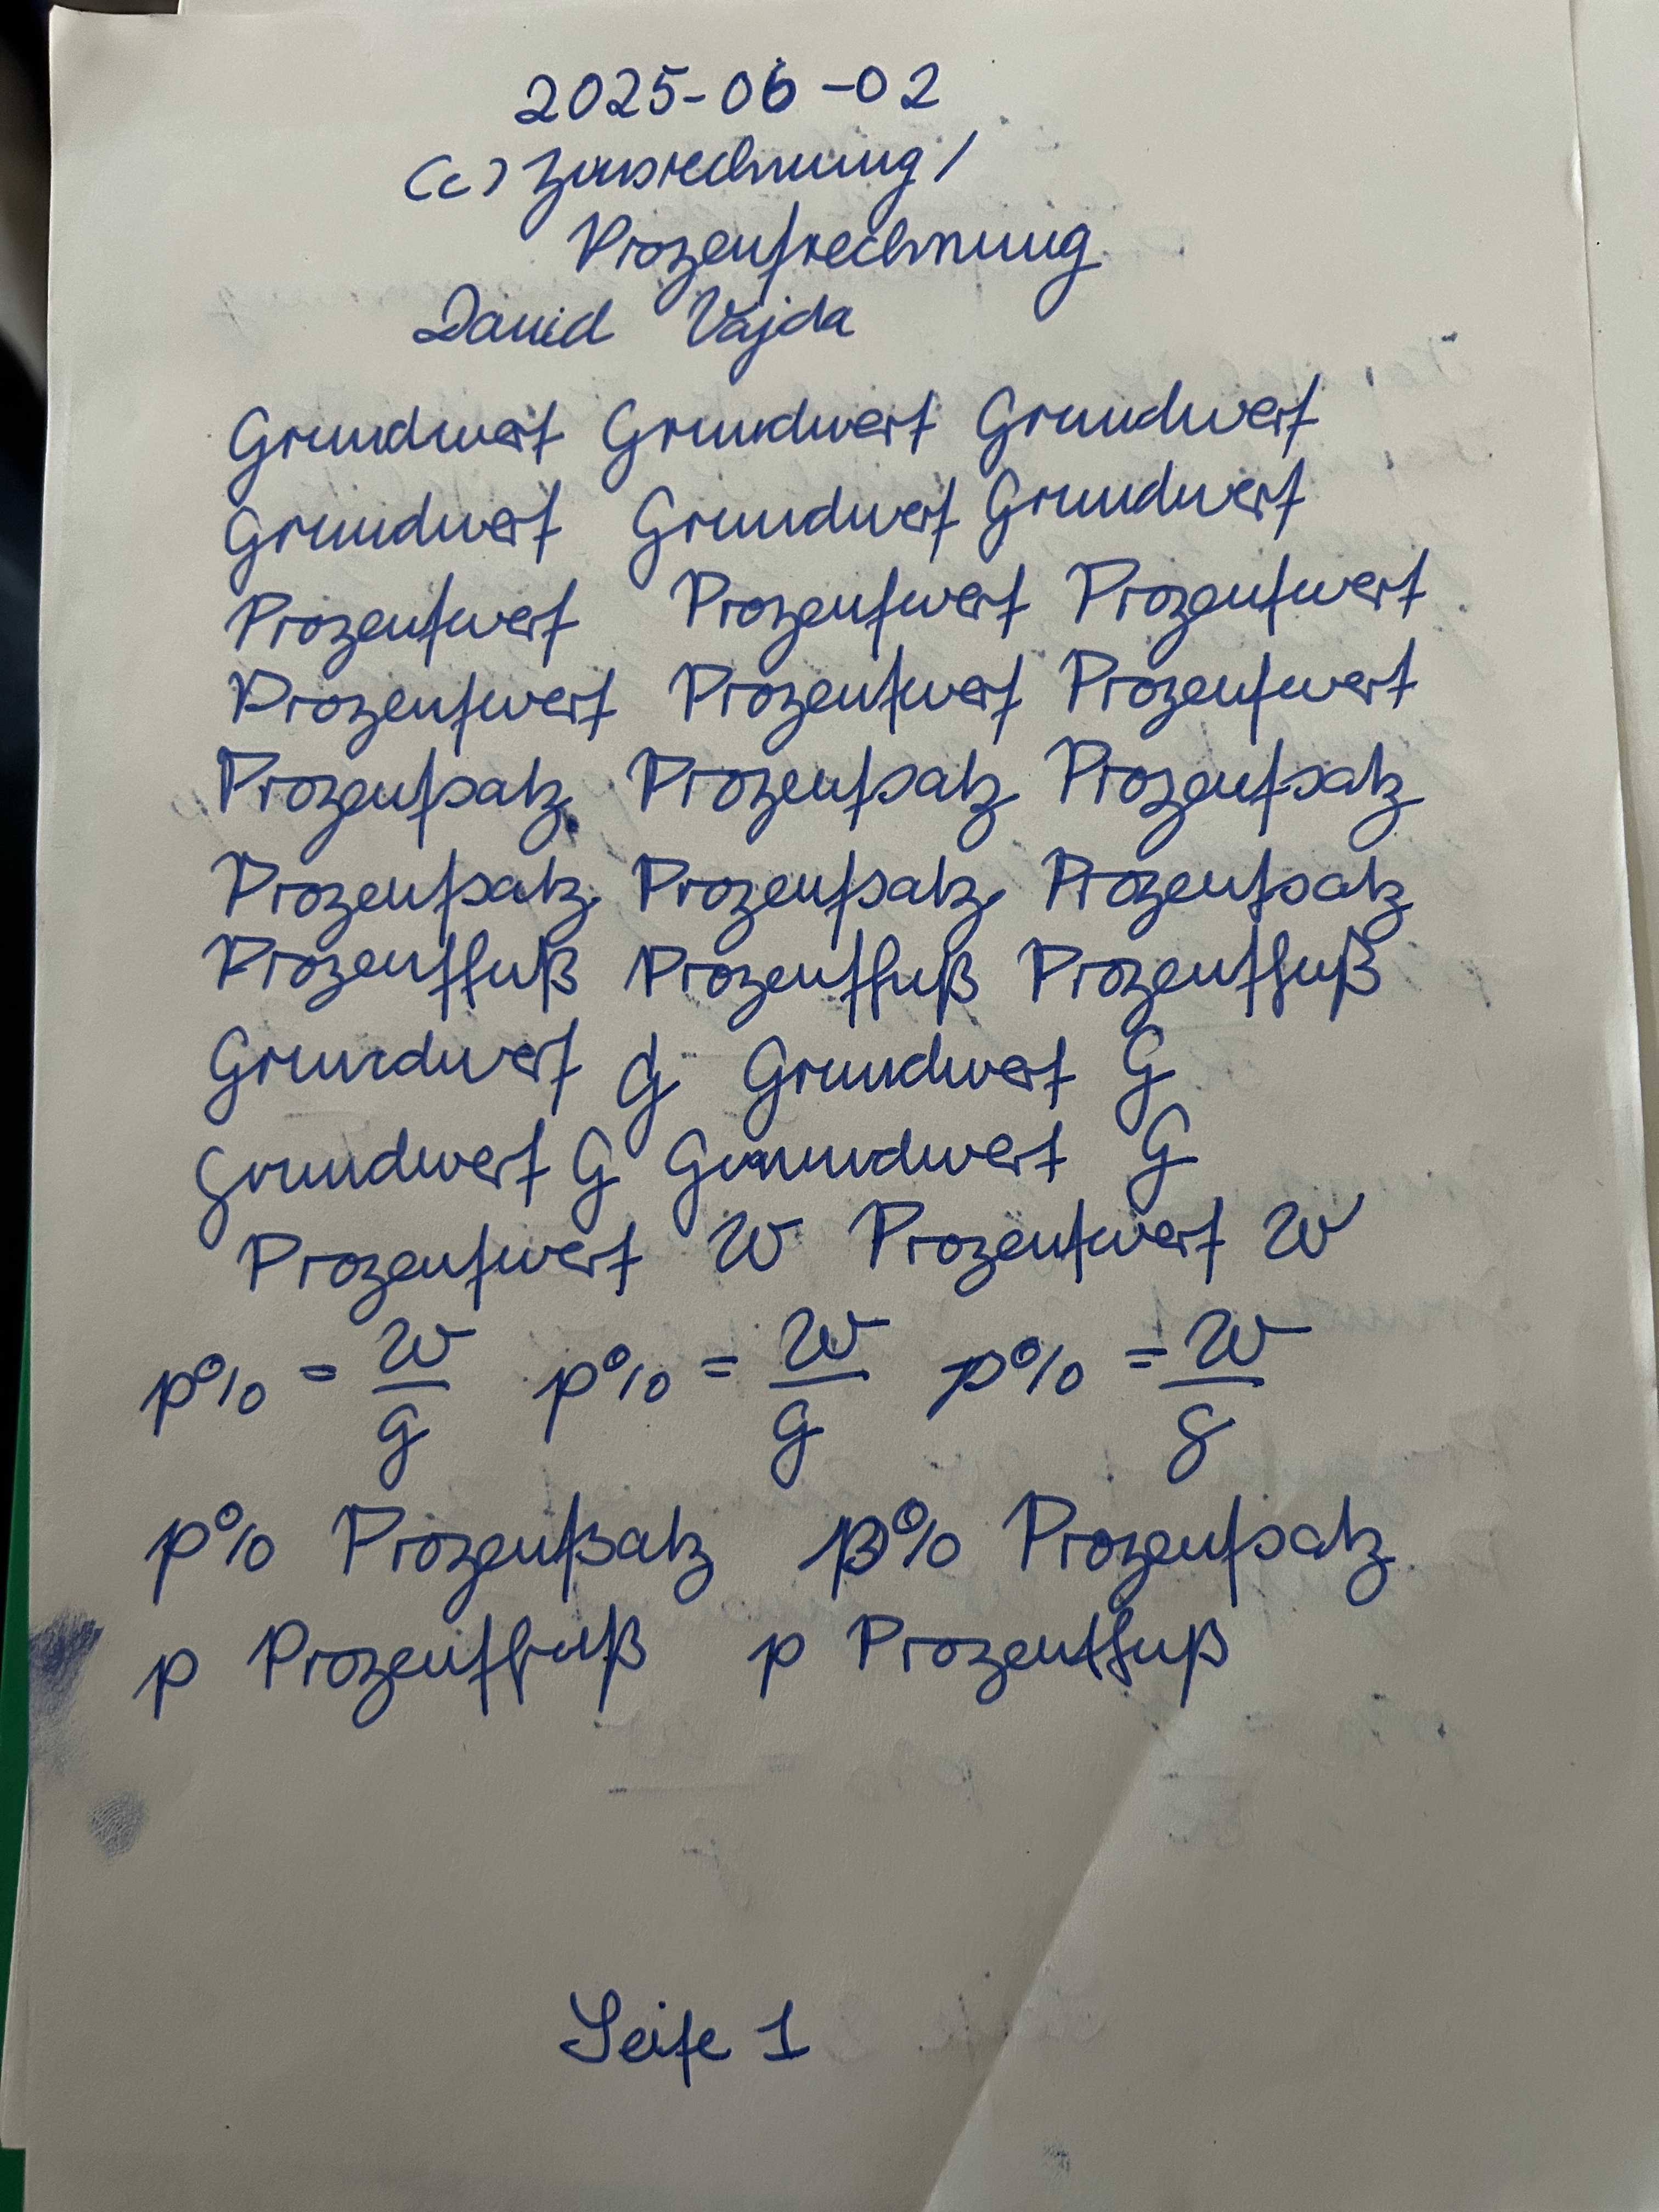 2025-06-02
(c) Zinsrechnung /
Prozentrechnung
David Vajda
Grundwert Grundwert Grundwert
Grundwert Grundwert Grundwert
Prozentwert Prozentwert Prozentwert
Prozentwert Prozentwert Prozentwert
Prozentsatz Prozentsatz Prozentsatz
Prozentsatz Prozentsatz Prozentsatz
Prozentfuß Prozentfuß Prozentfuß
Grundwert G Grundwert G
Grundwert G Grundwert G
Prozentwert W Prozentwert W
p% = W/G p% = W/G p% = W/G
p% Prozentsatz p% Prozentsatz
p Prozentfuß p Prozentfuß
Seite 1